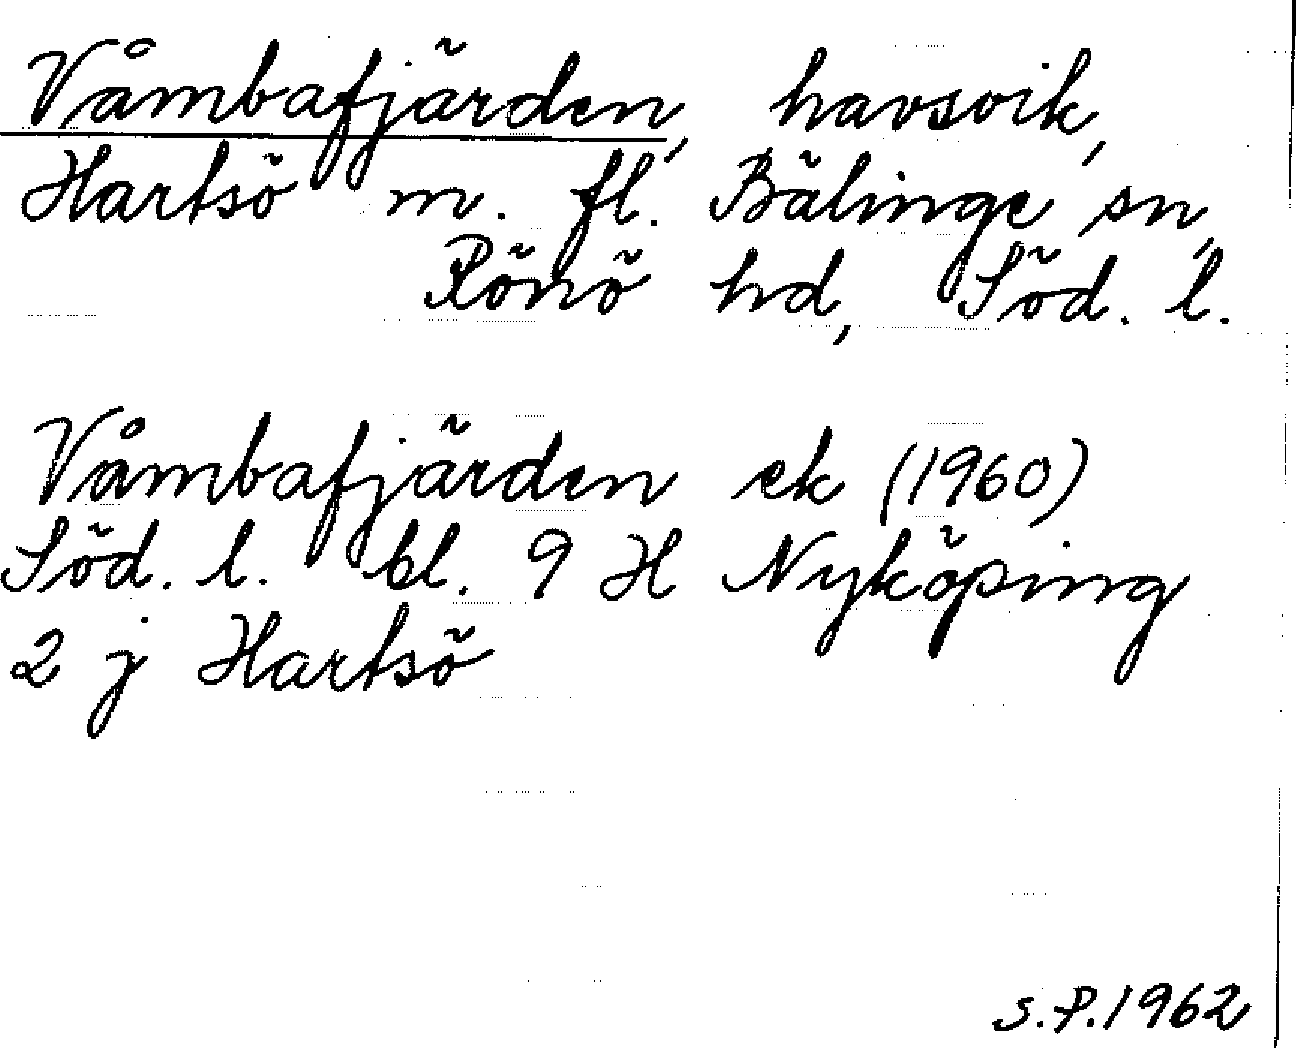 Våmbafjärden, havsvik,
Hartsö m. fl. Bälinge sn,
Rönö hd, Söd. l.
Våmbafjärden ek (1960)
Söd. l. bl. 9 H Nyköping
2 j Hartsö
S.P. 1962